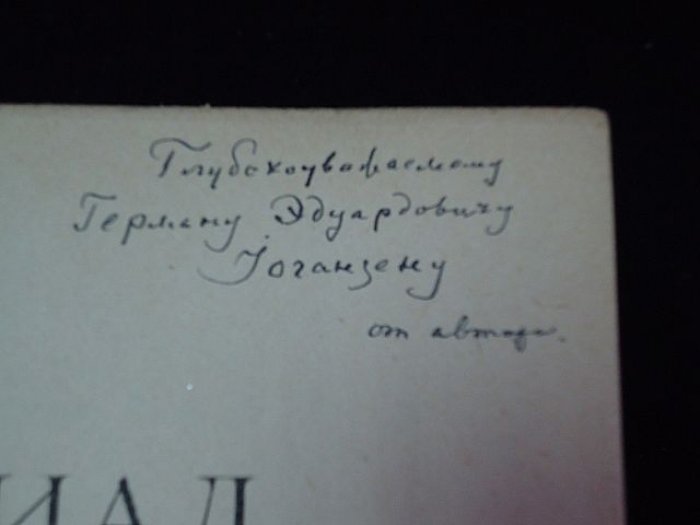 Глубокоуважаемому
Герману Эдуардовичу
Іоганзену
от автора.
ИАЛ